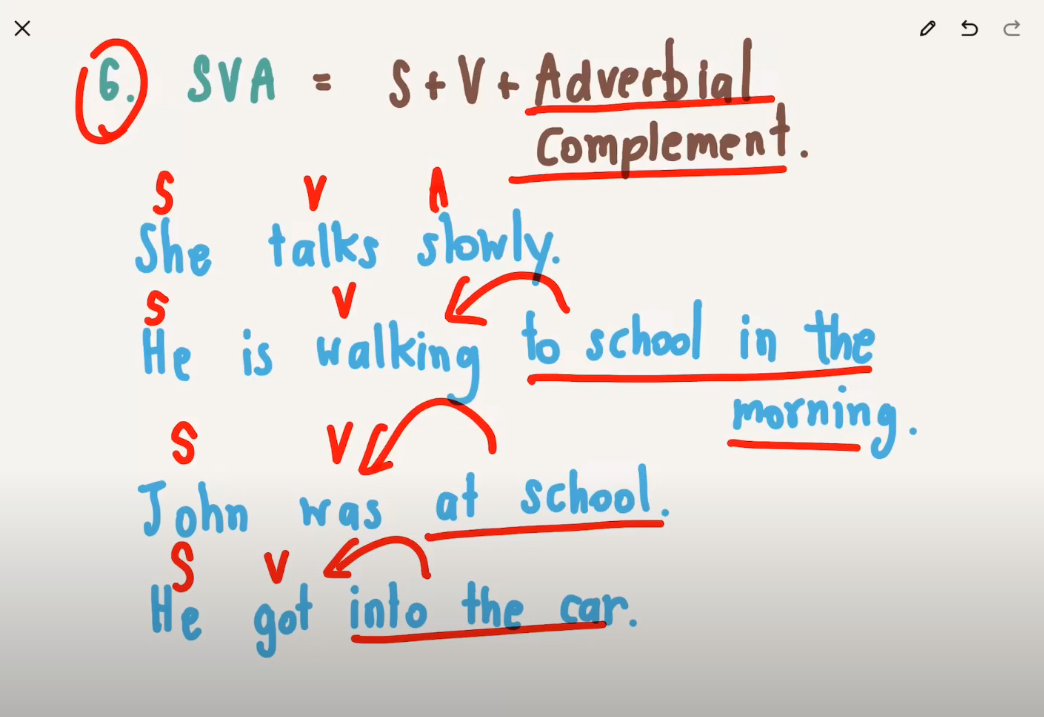 6. SVA = S + V + Adverbial
Complement.
S V A
She talks slowly.
S V
He is walking to school in the
morning.
S V
John was at school.
S V
He got into the car.